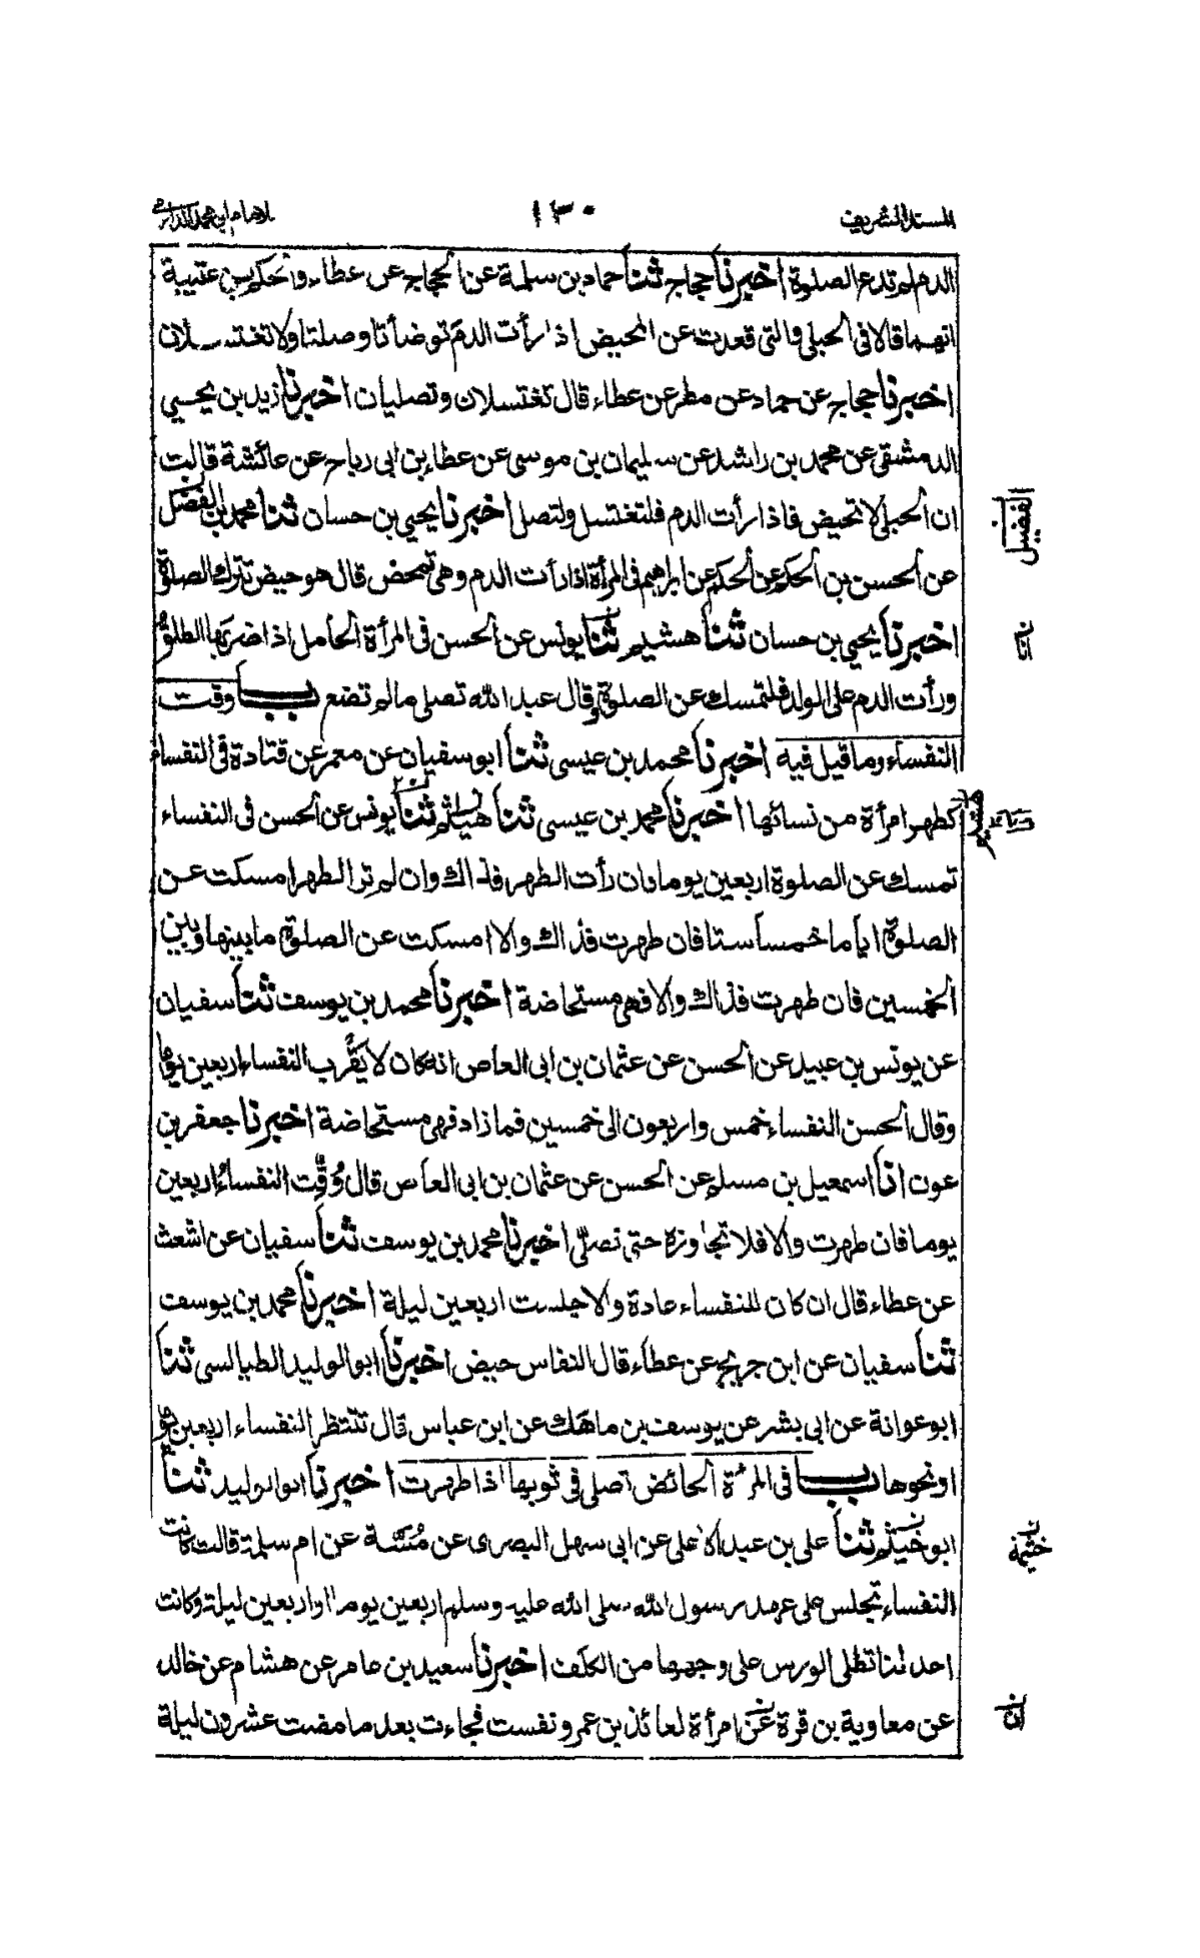 المسند الشريف
١٣٠
للامام ابی محمد الدارمی
الدم لم تدع الصلوة اخبرنا حجاج ثنا حماد بن سلمة عن الحجاج عن عطاء والحكم بن عتيبة
انهما قالا فی الحبلی والتی قعدت عن المحیض اذا رأت الدم توضأتا وصلتا ولا تغتسلان
اخبرنا حجاج عن حماد عن مطر عن عطاء قال تغتسلان وتصليان اخبرنا زيد بن يحيى
الدمشقی عن محمد بن راشد عن سليمان بن موسی عن عطاء بن ابی رباح عن عائشة قالت
ان الحبلی لا تحيض فاذا رأت الدم فلتغتسل ولتصل اخبرنا يحيی بن حسان ثنا محمد بن الفضل
الفضيل
عن الحسن بن الحكم عن الحكم عن ابراهيم فی المرأة اذا رأت الدم وهی تمخض قال هو حيض تترك الصلوة
اخبرنا يحيی بن حسان ثنا هشيم ثنا يونس عن الحسن فی المرأة الحامل اذا ضربها الطلق
انا
ورأت الدم علی الولد فلتمسك عن الصلوة وقال عبد الله تصلی ما لم تضع باب وقت
النفساء وما قيل فيه اخبرنا محمد بن عيسی ثنا ابو سفيان عن معمر عن قتادة فی النفساء
كطهر امرأة من نسائها اخبرنا محمد بن عيسی ثنا هياثم ثنا يونس عن الحسن فی النفساء
هشيم
تمسك عن الصلوة اربعين يوما فان رأت الطهر فذالك وان لم تر الطهر امسكت عن
الصلوة اياما خمسا ستا فان طهرت فذالك والا امسكت عن الصلوة ما بينها وبين
الخمسين فان طهرت فذالك والا فهی مستحاضة اخبرنا محمد بن يوسف ثنا سفيان
عن يونس بن عبيد عن الحسن عن عثمان بن ابی العاص انه كان لا يَقْرَب النفساء اربعين يوما
وقال الحسن النفساء خمس واربعون الی خمسين فما زاد فهی مستحاضة اخبرنا جعفر بن
عون انا اسمعيل بن مسلم عن الحسن عن عثمان بن ابی العاص قال وُقِّت النفساءُ اربعين
يوما فان طهرت والا فلا تجاوزه حتی تصلّی اخبرنا محمد بن يوسف ثنا سفيان عن اشعث
عن عطاء قال ان كان للنفساء عادة والا جلست اربعين ليلة اخبرنا محمد بن يوسف
ثنا سفيان عن ابن جريج عن عطاء قال النفاس حيض اخبرنا ابو الوليد الطيالسی ثنا
ابو عوانة عن ابی بشر عن يوسف بن ماهَك عن ابن عباس قال تنتظر النفساء اربعين يوما
او نحوها باب فی المرأة الحائض تصلی فی ثوبها اذا طهرت اخبرنا ابو الوليد ثنا
ابو خيثم ثنا علی بن عبد الاعلی عن ابی سهل البصری عن مُسَّة عن ام سلمة قالت كانت
خثيمة
النفساء تجلس علی عهد رسول الله صلی الله عليه وسلم اربعين يوما او اربعين ليلة وكانت
احدانا تطلی الورس علی وجهها من الكلف اخبرنا سعيد بن عامر عن هشام عن خالد
عن معاوية بن قرة عن امرأة لعائذ بن عمرو نفست فجاءت بعد ما مضت عشرون ليلة
ان